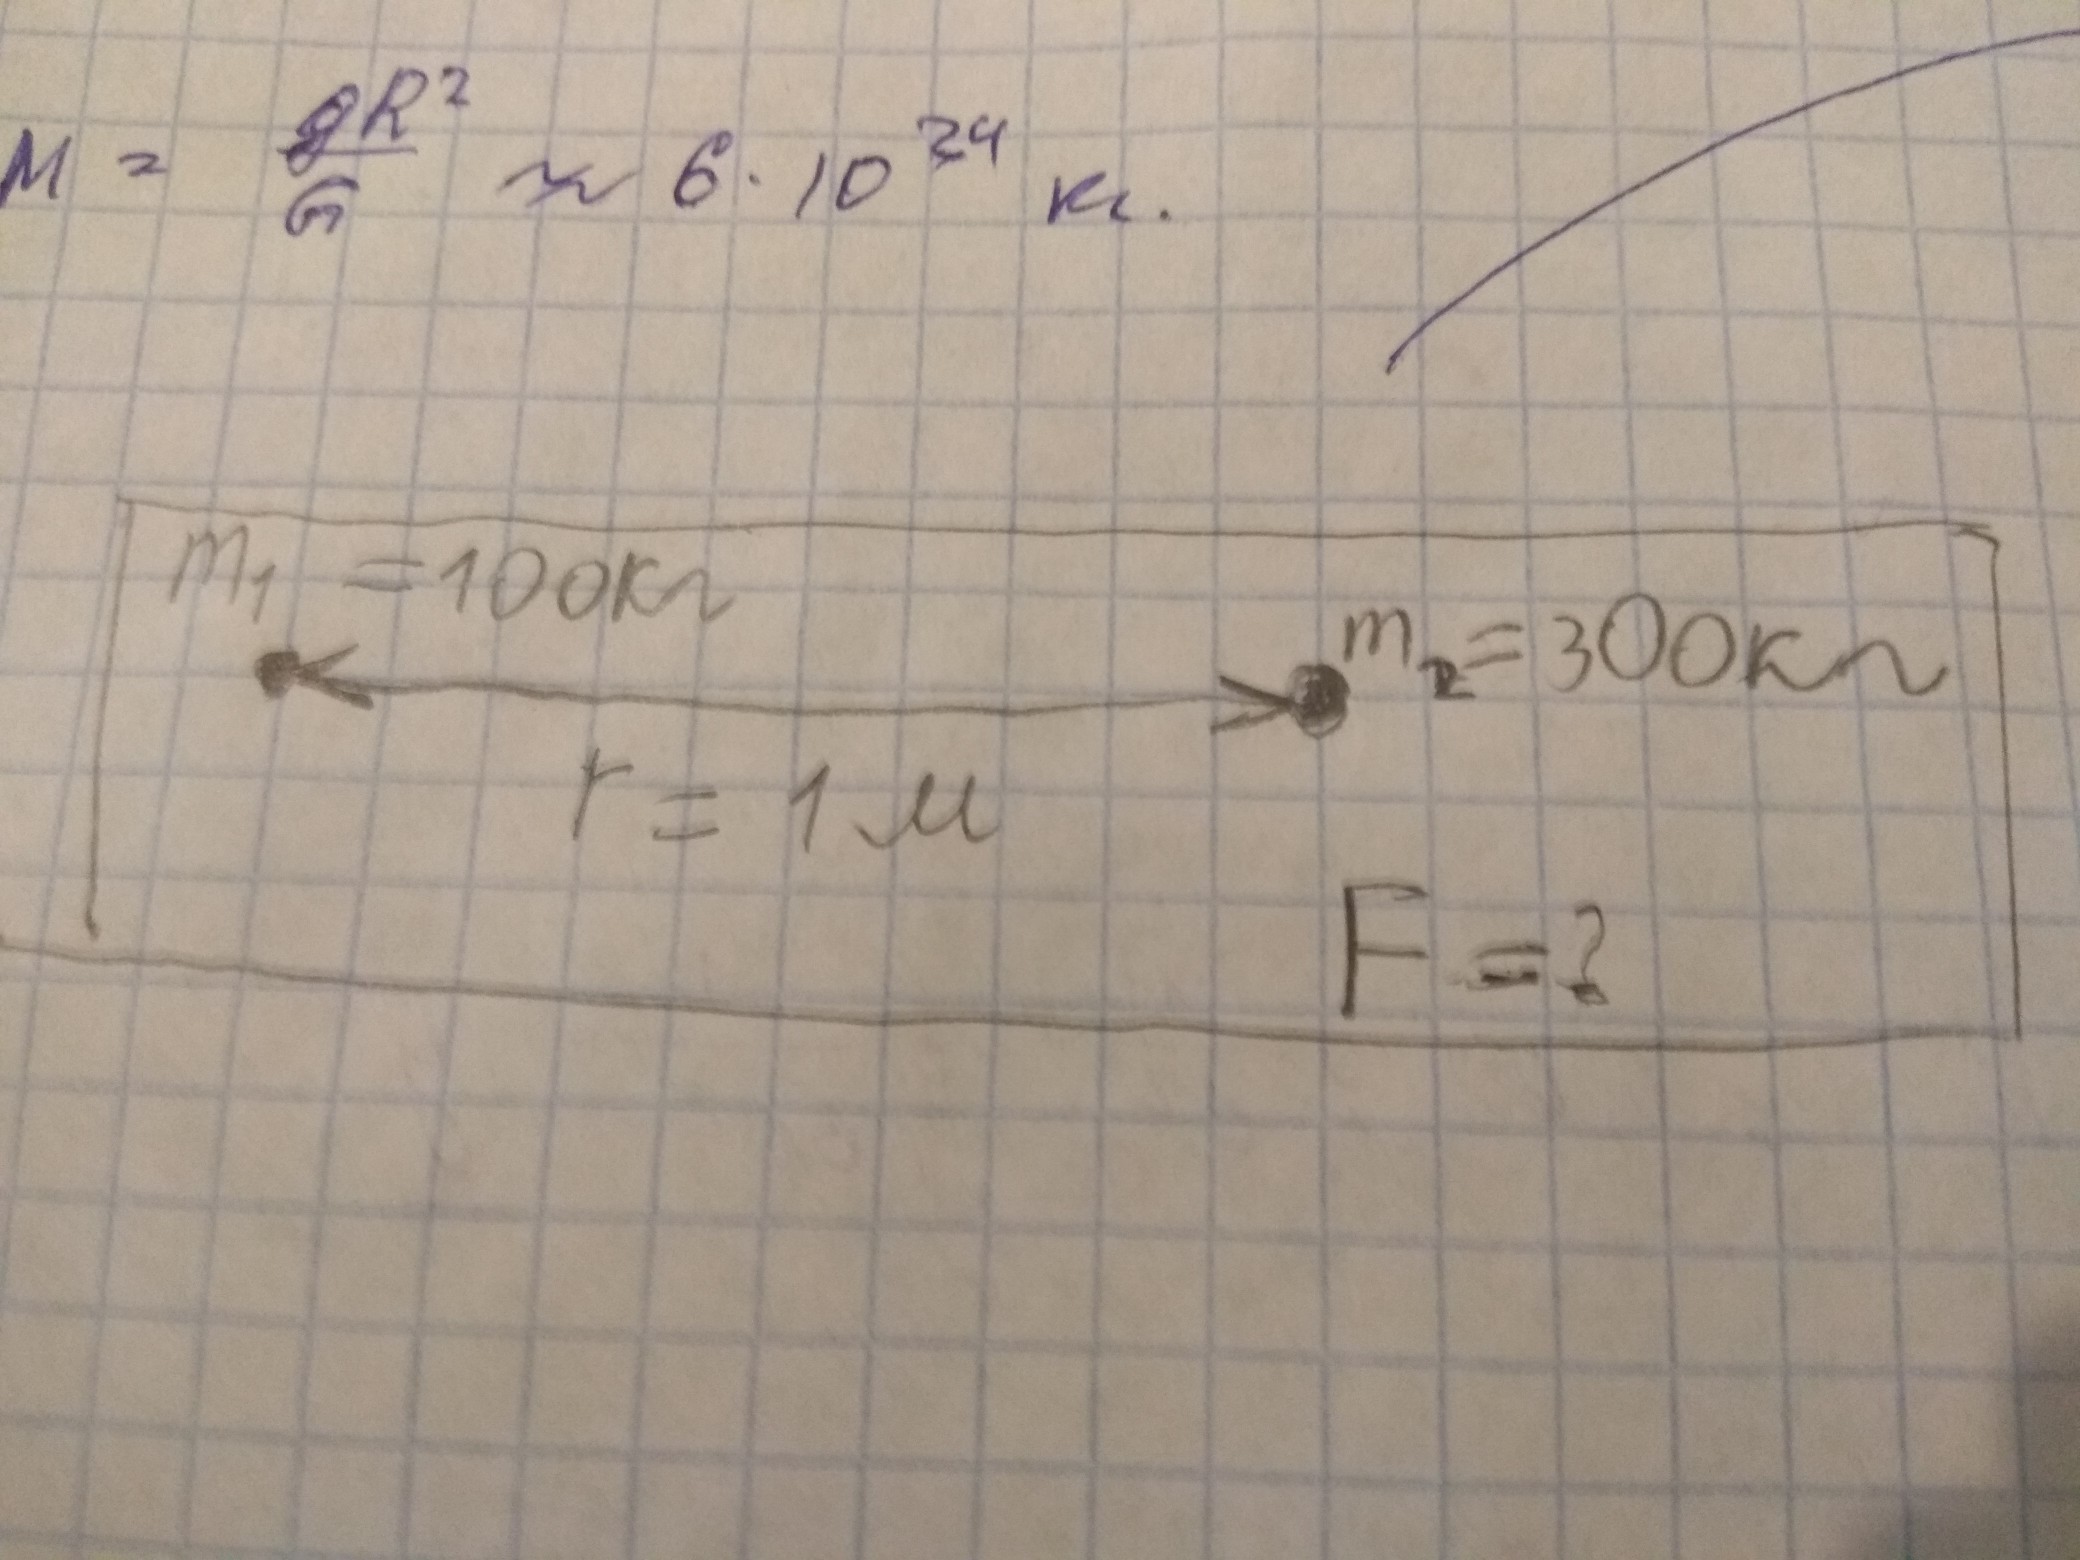 M = gR²/G ≈ 6·10²⁴ кг.
m₁ = 100кг
m₂ = 300кг
r = 1м
F = ?